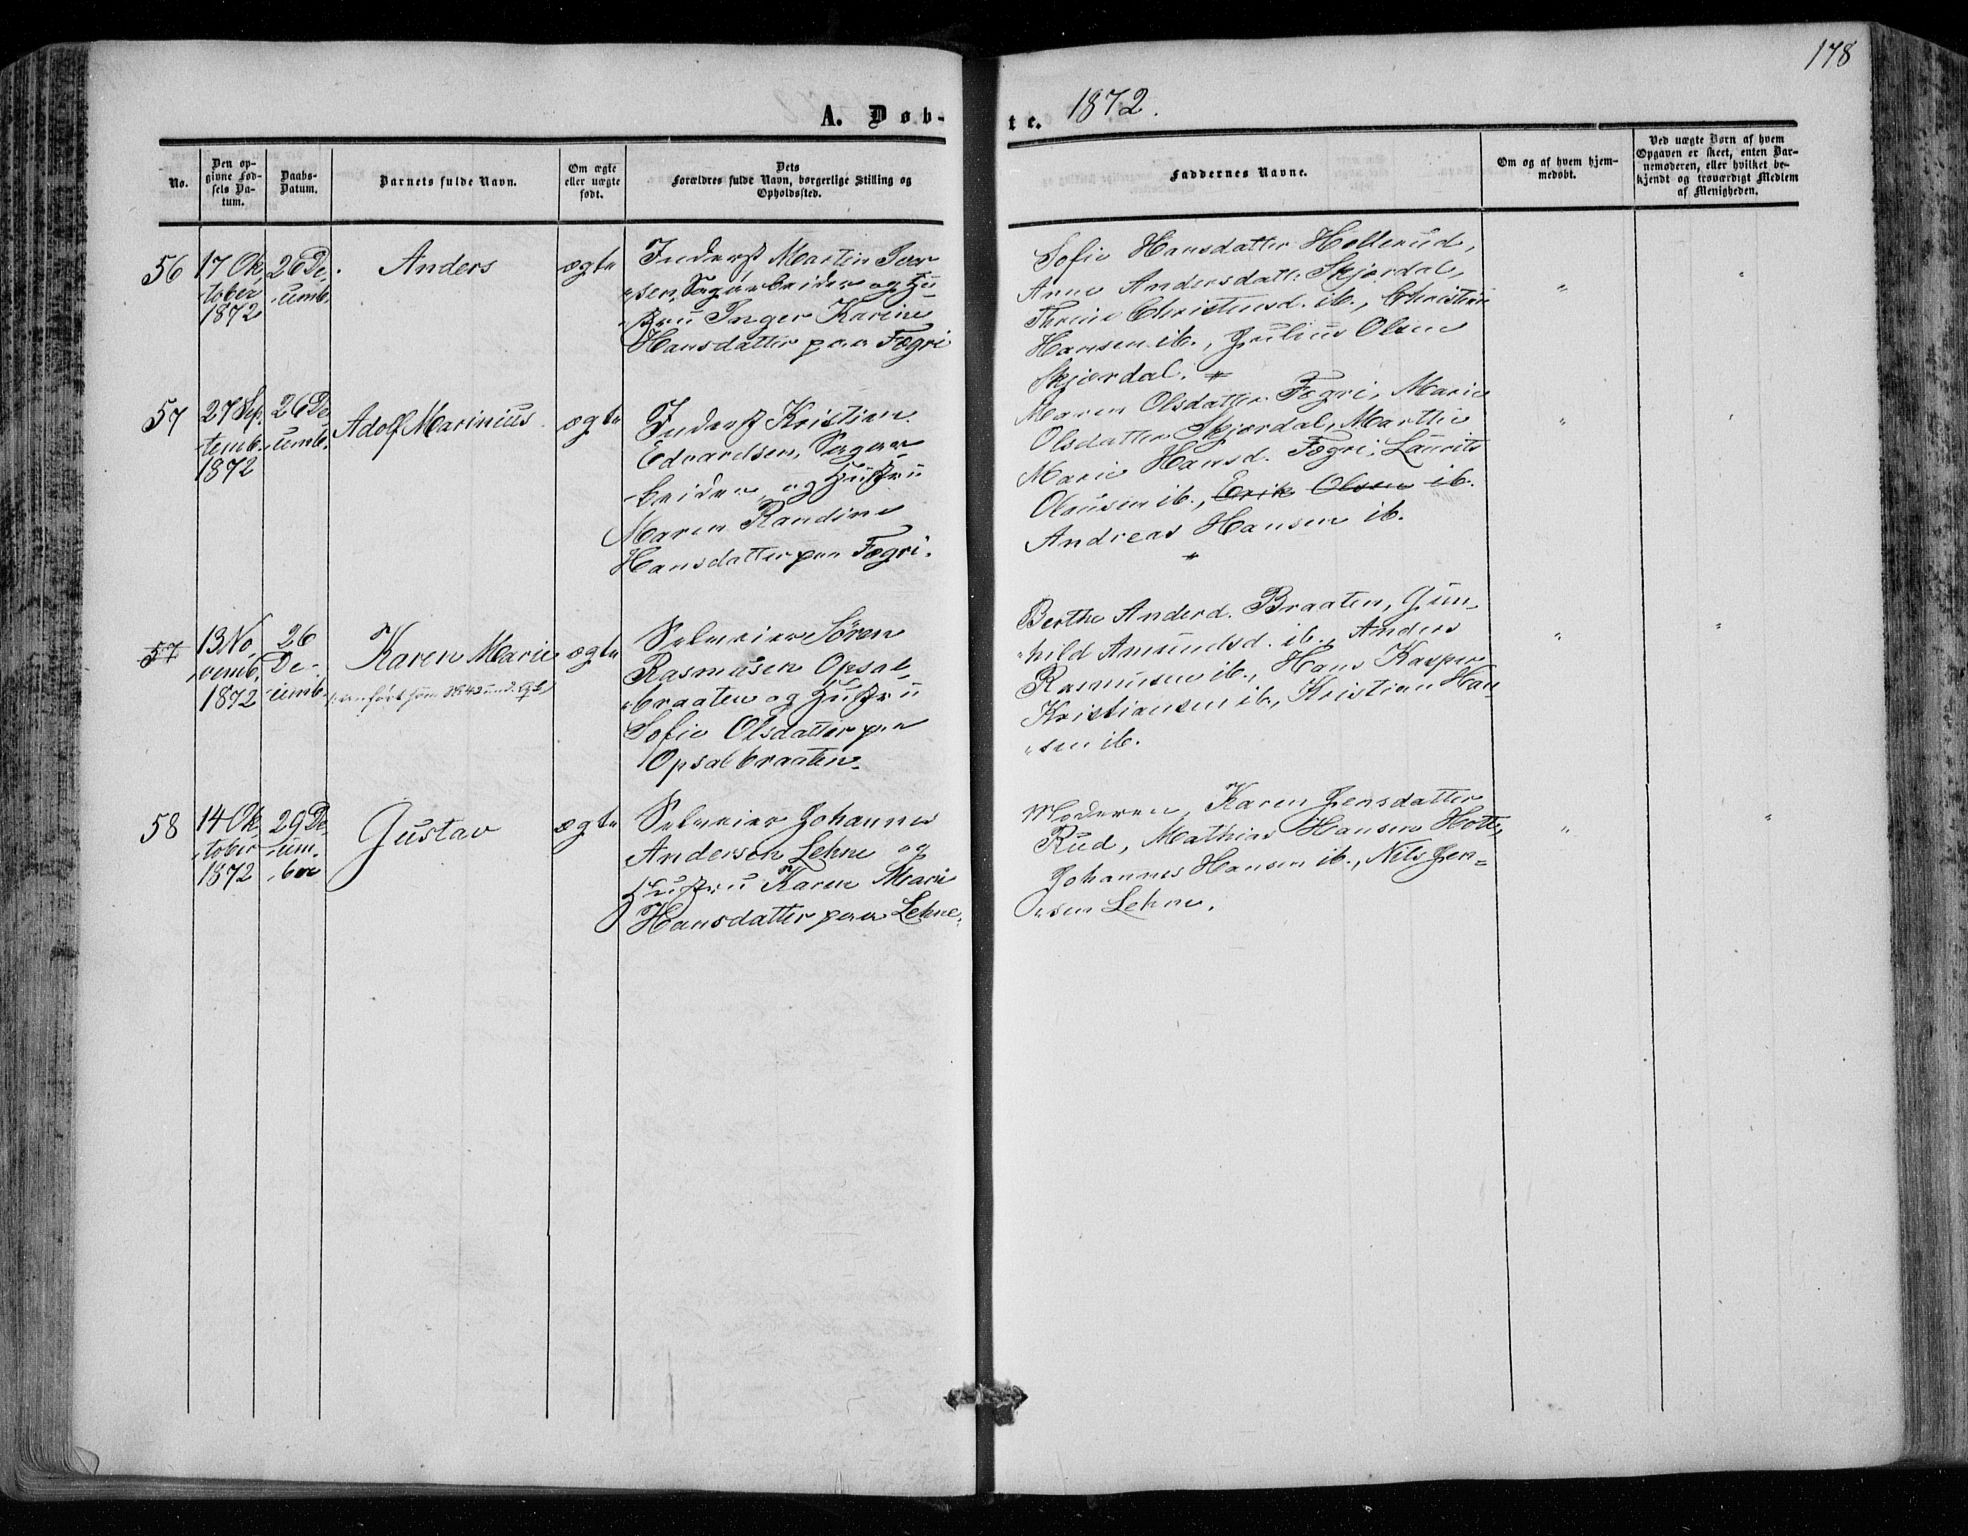 178
A. Døb-
te. 1872.
No.
Den op-
givne Fød-
sels Da-
tum.
Daabs-
Datum.
Barnets fulde Navn.
Om ægte
eller uægte
født.
Dets
Forældres fulde Navn, borgerlige Stilling og
Opholdssted.
Faddernes Navne.
Om og af hvem hjem-
medøbt.
Ved uægte Børn af hvem
Opgaven er skeet, enten Bar-
nemoderen, eller hvilket be-
kjendt og troværdigt Medlem
af Menigheden.
56
17 Ok
tober
1872
26 De
cemb.
Anders
ægte
Inderst Martin Iver
sen, Sagarbeider og Hu-
stru Inger Karine
Hansdatter paa Fægri
Sofie Hansdatter Hollerud,
Anne Andersdatt. Skjærdal,
Thrine Christensd. ib., Christian
Hansen ib., Julius Olsen
Skjærdal.
57
27 Sep.
temb.
1872
26 De
cemb.
Adolf Marinius
ægte
Inderst Kristian
Edvardsen, Sagar-
beider, og Hustru
Maren Randine
Hansdatter paa Fægri.
Maren Olsdatter Fægri, Marie
Olsdatter Skjærdal, Marthe
Marie Hansd. Fægri, Laurits
Olausen ib., Erik Olsen ib.
Andreas Hansen ib.
57
13 No
vemb.
1872
26
De-
cemb.
Karen Marie
ægte
Selveier Søren
Rasmusen Opsal-
braaten og Hustru
Sofie Olsdatter paa
Opsalbraaten.
Berthe Anderd. Braaten, Gun-
hild Amundsd. ib., Anders
Rasmusen ib., Hans Kasper
Kristiansen ib., Kristian Han-
sen ib.
58
14 Ok
tober
1872
29 De
cem.
ber
Gustav
ægte
Selveier Johannes
Andersen Lehne og
Hustru Karen Marie
Hansdatter paa Lehne.
Moderen, Karen Jensdatter
Rud, Mathias Hansen Holte,
Johannes Hansen ib., Nils Jen-
sen Lehne.